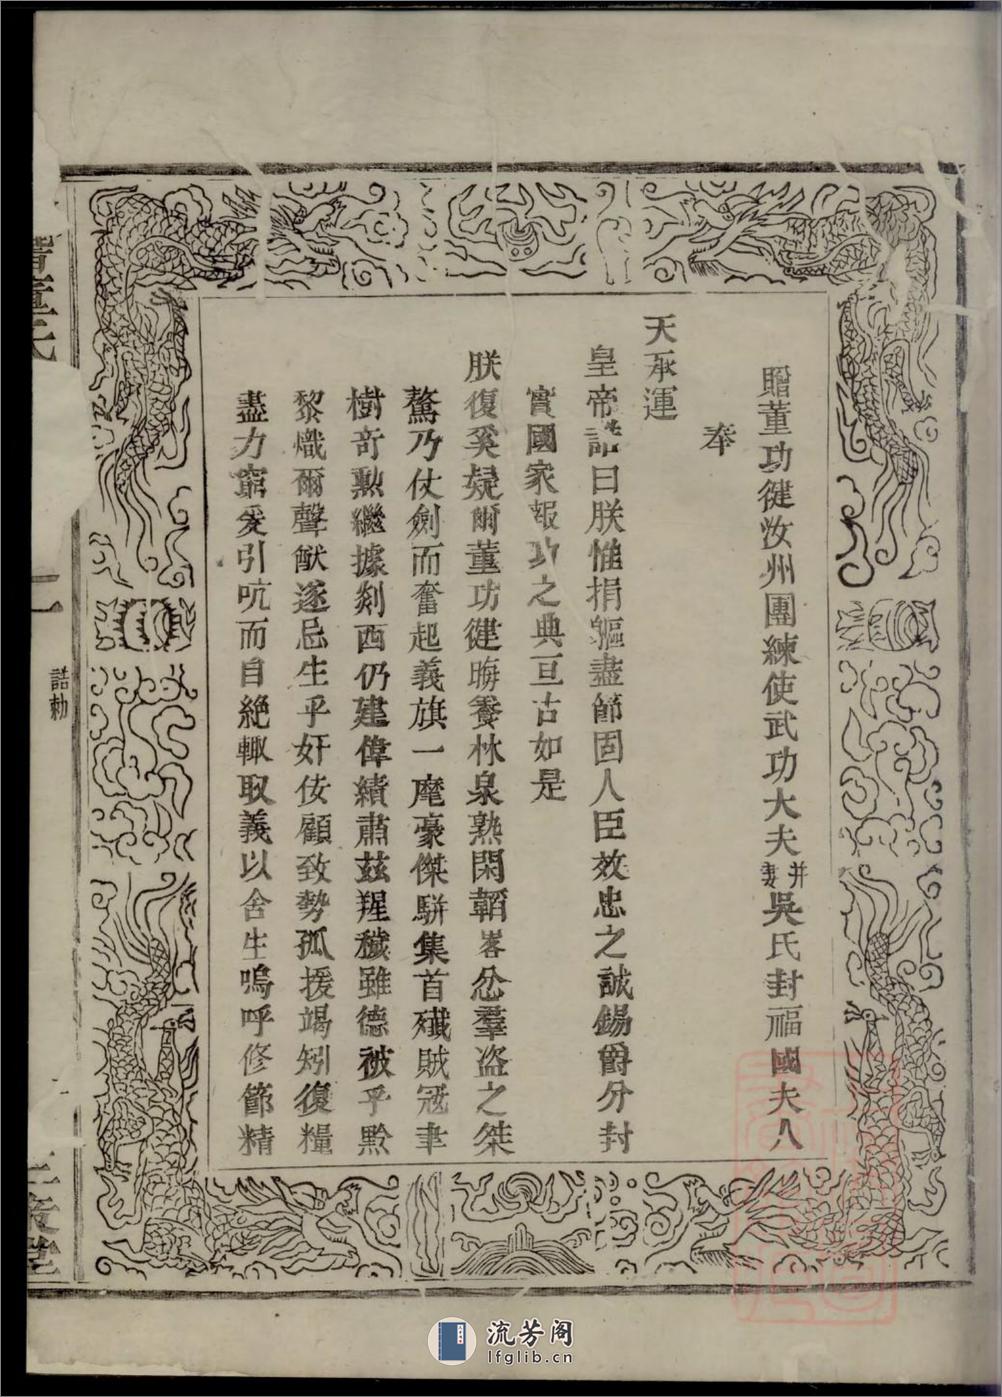 贈董功健汝州團練使武功大夫并妻吳氏封福國夫人
奉
天承運
皇帝誥曰朕惟捐軀盡節固人臣效忠之誠錫爵分封
實國家報功之典亘古如是
朕復奚疑爾董功健晦養林泉熟閑韜畧忿羣盗之桀
驁乃仗劍而奮起義旗一麾豪傑駢集首殱賊冦聿
樹竒勲繼據剡西仍建偉績肅兹羶穢雖德被乎黔
黎熾爾聲猷遂忌生乎奸佞顧致勢孤援竭矧復糧
盡力窮爰引吭而自絶輙取義以舍生嗚呼修節精
董氏
二
誥勅
三
堂
流芳阁
lfglib.cn